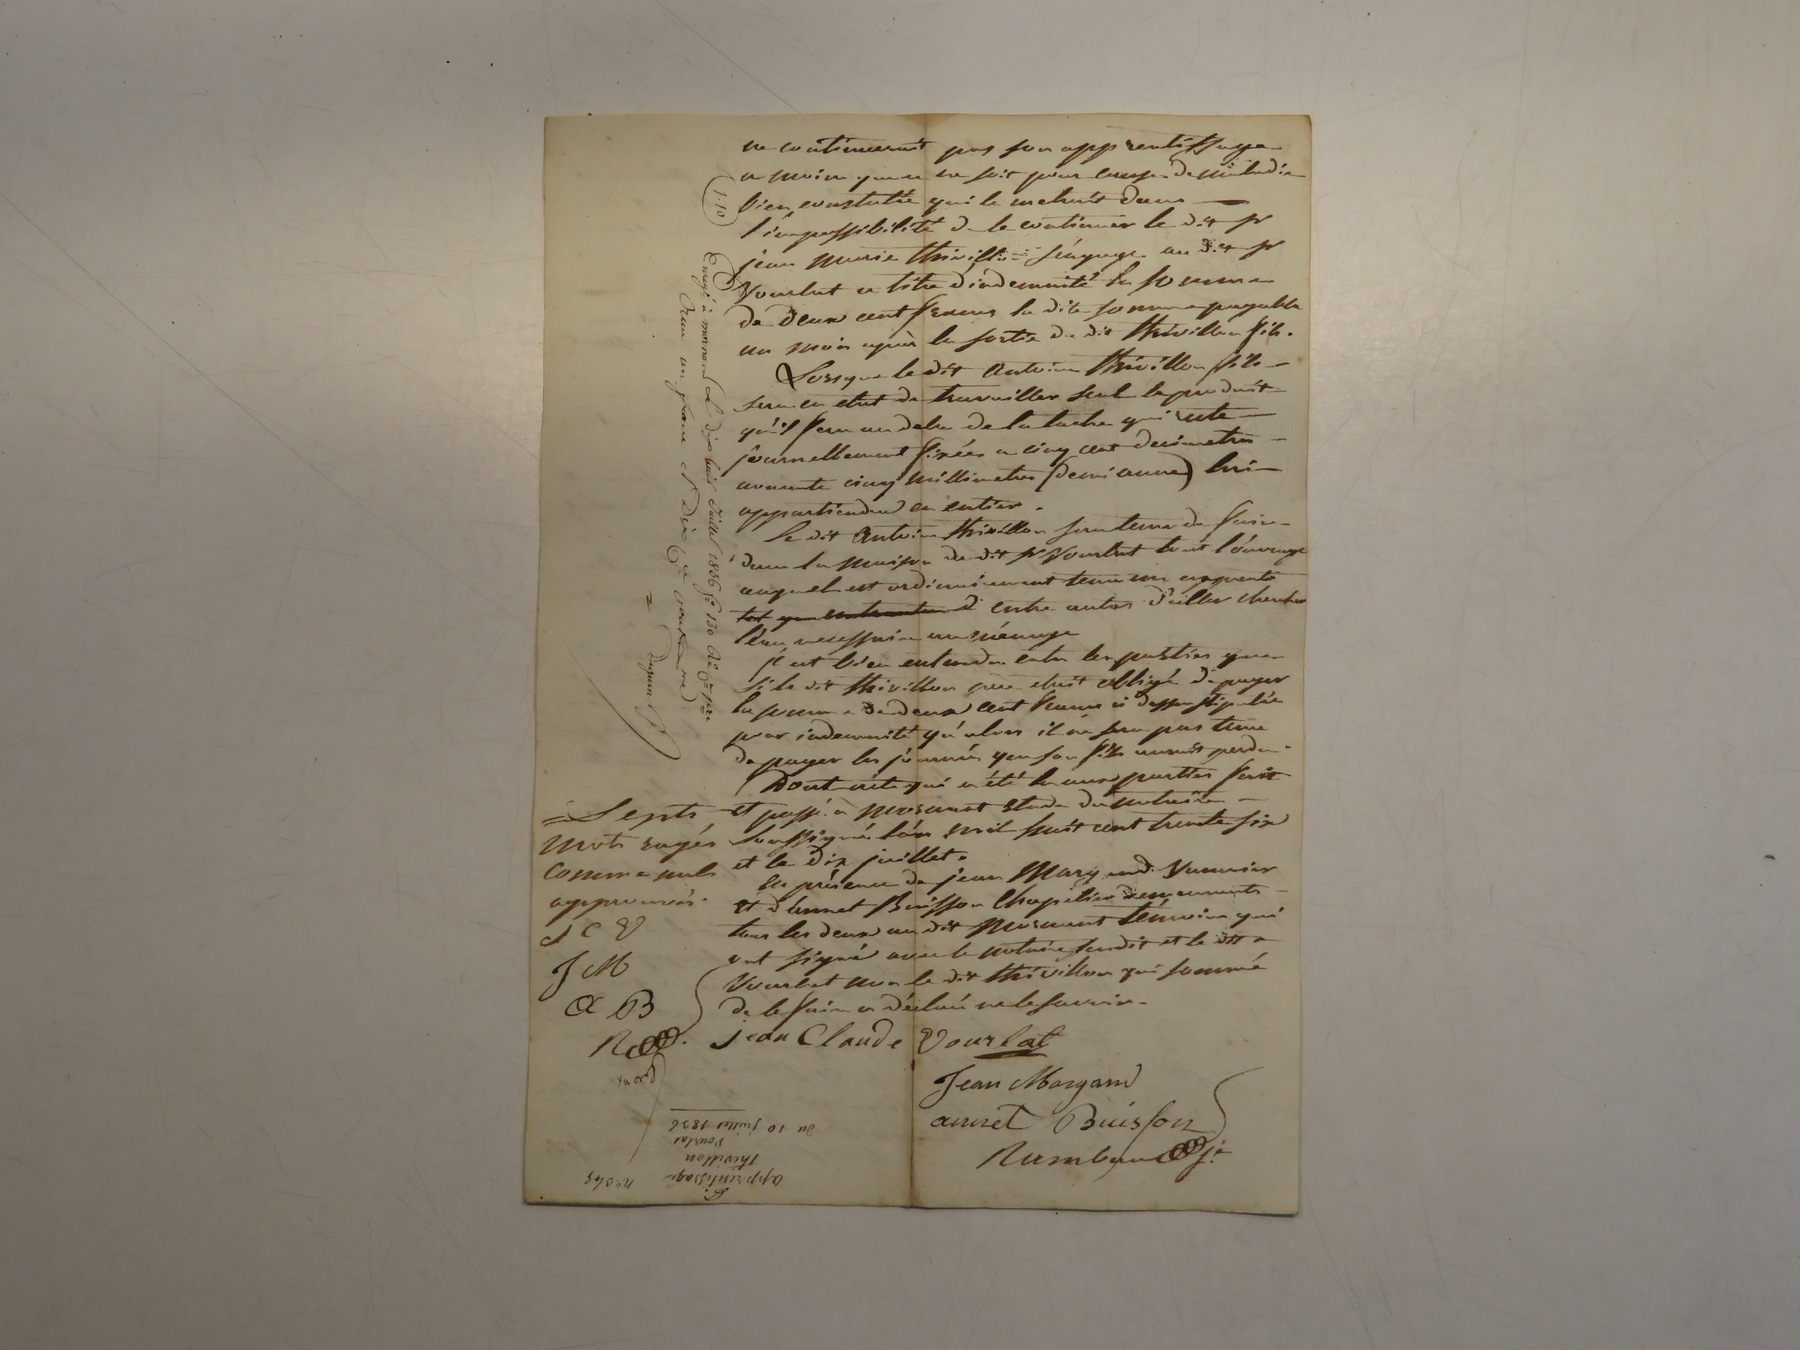 ne continuerait pas son apprentissage
a moins que ce ne soit pour cause de maladie
bien constatée qui le metrait dans
l'impossibilité de le continuer le dit sr
jean marie thivillon s'engage au dit sr
Vourlat a titre d'indemnité la somme
de deux cent francs la dite somme payable
un mois après la sortie du dit thivillon fils.
Lorsque le dit Antoine thivillon fils
sera en etat de travailler seul le produit
qu'il fera au dela de la tache qui reste
journellement fixée a cinq cent decimetres
cinq millimetres (demi aune) lui
appartiendra en entier.
Le dit Antoine thivillon sera tenu de faire
dans la maison du dit sr Vourlat tout l'ouvrage
auquel est ordinairement tenu un apprenti
entre autres d'aller chercher
l'eau necessaire au ménage
il est bien entendu entre les parties que
si le dit thivillon père etait obligé de payer
la somme de deux cent francs ci dessus stipulée
pour indemnité qu'alors il ne sera pas tenu
de payer les journées que son fils aurait perdu.
Dont acte qui a été lu aux parties fait
et passé à mornant etude du notaire
soussigné l'an mil huit cent trente six
et le dix juillet.
En présence de jean Margand Vannier
et d'annet Buisson Chapelier demeurants
tous les deux au dit Mornant témoins qui
ont signé avec le notaire susdit et le dit
Vourlat non le dit thivillon qui sommé
de le faire a déclaré ne le savoir.
jean Claude Vourlat
Jean Margand
annet Buisson
= Septs
mots rayés
comme nuls
approuvés.
J C V
J M
A B
1.10
Enregé à mornant le dix huit Juillet 1836 fo 130
Reçu un franc et dix
no 345
apprentissage
thivillon
Vourlat
du 10 juillet 1836